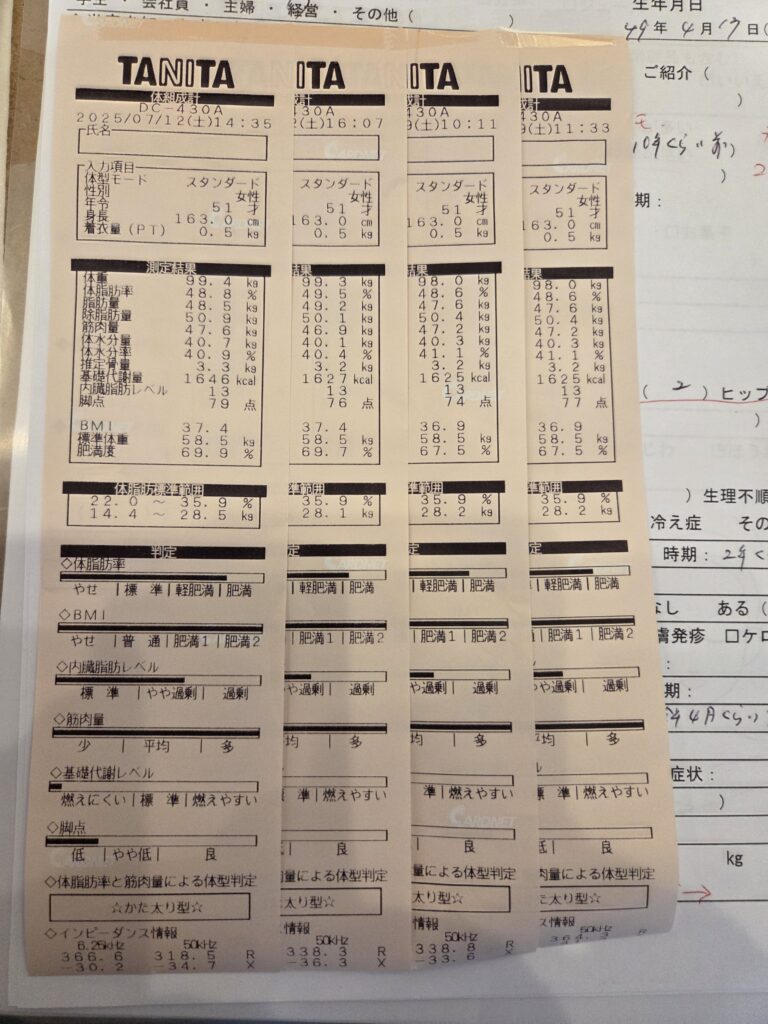 学生 ・ 会社員 ・ 主婦 ・ 経営 ・ その他 (            )
生年月日
49年 4月17日(
ご紹介 (
)
10年くらい前)
)
期：
( 2 ) ヒップ
)
) 生理不順
冷え症 その
時期： 2年く
なし ある (
膚発疹 □ケロ
：
期：
年4月くらい
症状：
)
kg
TANITA
体組成計
DC-430A
2025/07/12(土)14:35
氏名
入力項目
体型モード スタンダード
性別 女性
年令 51 才
身長 163.0 cm
着衣量(PT) 0.5 kg
測定結果
体重 99.4 kg
体脂肪率 48.8 %
脂肪量 48.5 kg
除脂肪量 50.9 kg
筋肉量 47.6 kg
体水分量 40.7 kg
体水分率 40.9 %
推定骨量 3.3 kg
基礎代謝量 1646 kcal
内臓脂肪レベル 13
脚点 79 点
BMI 37.4
標準体重 58.5 kg
肥満度 69.9 %
体脂肪標準範囲
22.0 ～ 35.9 %
14.4 ～ 28.5 kg
判定
◇体脂肪率
やせ | 標 準 | 軽肥満 | 肥満
◇BMI
やせ | 普 通 | 肥満1 | 肥満2
◇内臓脂肪レベル
標 準 | やや過剰 | 過剰
◇筋肉量
少 | 平均 | 多
◇基礎代謝レベル
燃えにくい | 標 準 | 燃えやすい
◇脚点
低 | やや低 | 良
◇体脂肪率と筋肉量による体型判定
☆かた太り型☆
◇インピーダンス情報
6.25kHz 50kHz
366.6 318.5 R
-30.2 -34.7 X
ITA
計
30A
2(土)16:07
CARDNET
スタンダード
女性
51 才
163.0 cm
0.5 kg
結果
99.3 kg
49.5 %
49.2 kg
50.1 kg
46.9 kg
40.1 kg
40.4 %
3.2 kg
1627 kcal
13
76 点
37.4
58.5 kg
69.7 %
準範囲
35.9 %
28.1 kg
定
CARDNET
準 | 軽肥満 | 肥満
通 | 肥満1 | 肥満2
やや過剰 | 過剰
均 | 多
準 | 燃えやすい
低 | 良
量による体型判定
太り型☆
情報
50kHz
338.3 R
-36.3 X
ITA
計
430A
9(土)10:11
スタンダード
女性
51 才
163.0 cm
0.5 kg
結果
98.0 kg
48.6 %
47.6 kg
50.4 kg
47.2 kg
40.3 kg
41.1 %
3.2 kg
1625 kcal
13
74 点
36.9
58.5 kg
67.5 %
準範囲
35.9 %
28.2 kg
定
準 | 軽肥満 | 肥満
通 | 肥満1 | 肥満2
やや過剰 | 過剰
均 | 多
準 | 燃えやすい
CARDNET
低 | 良
量による体型判定
太り型☆
情報
50kHz
338.8 R
-33.6 X
ITA
計
430A
9(土)11:33
スタンダード
女性
51 才
163.0 cm
0.5 kg
結果
98.0 kg
48.6 %
47.6 kg
50.4 kg
47.2 kg
40.3 kg
41.1 %
3.2 kg
1625 kcal
13
77 点
36.9
58.5 kg
67.5 %
準範囲
35.9 %
28.2 kg
定
準 | 軽肥満 | 肥満
通 | 肥満1 | 肥満2
やや過剰 | 過剰
均 | 多
ル
準 | 燃えやすい
低 | 良
肉量による体型判定
太り型☆
ス情報
50kHz
R
X